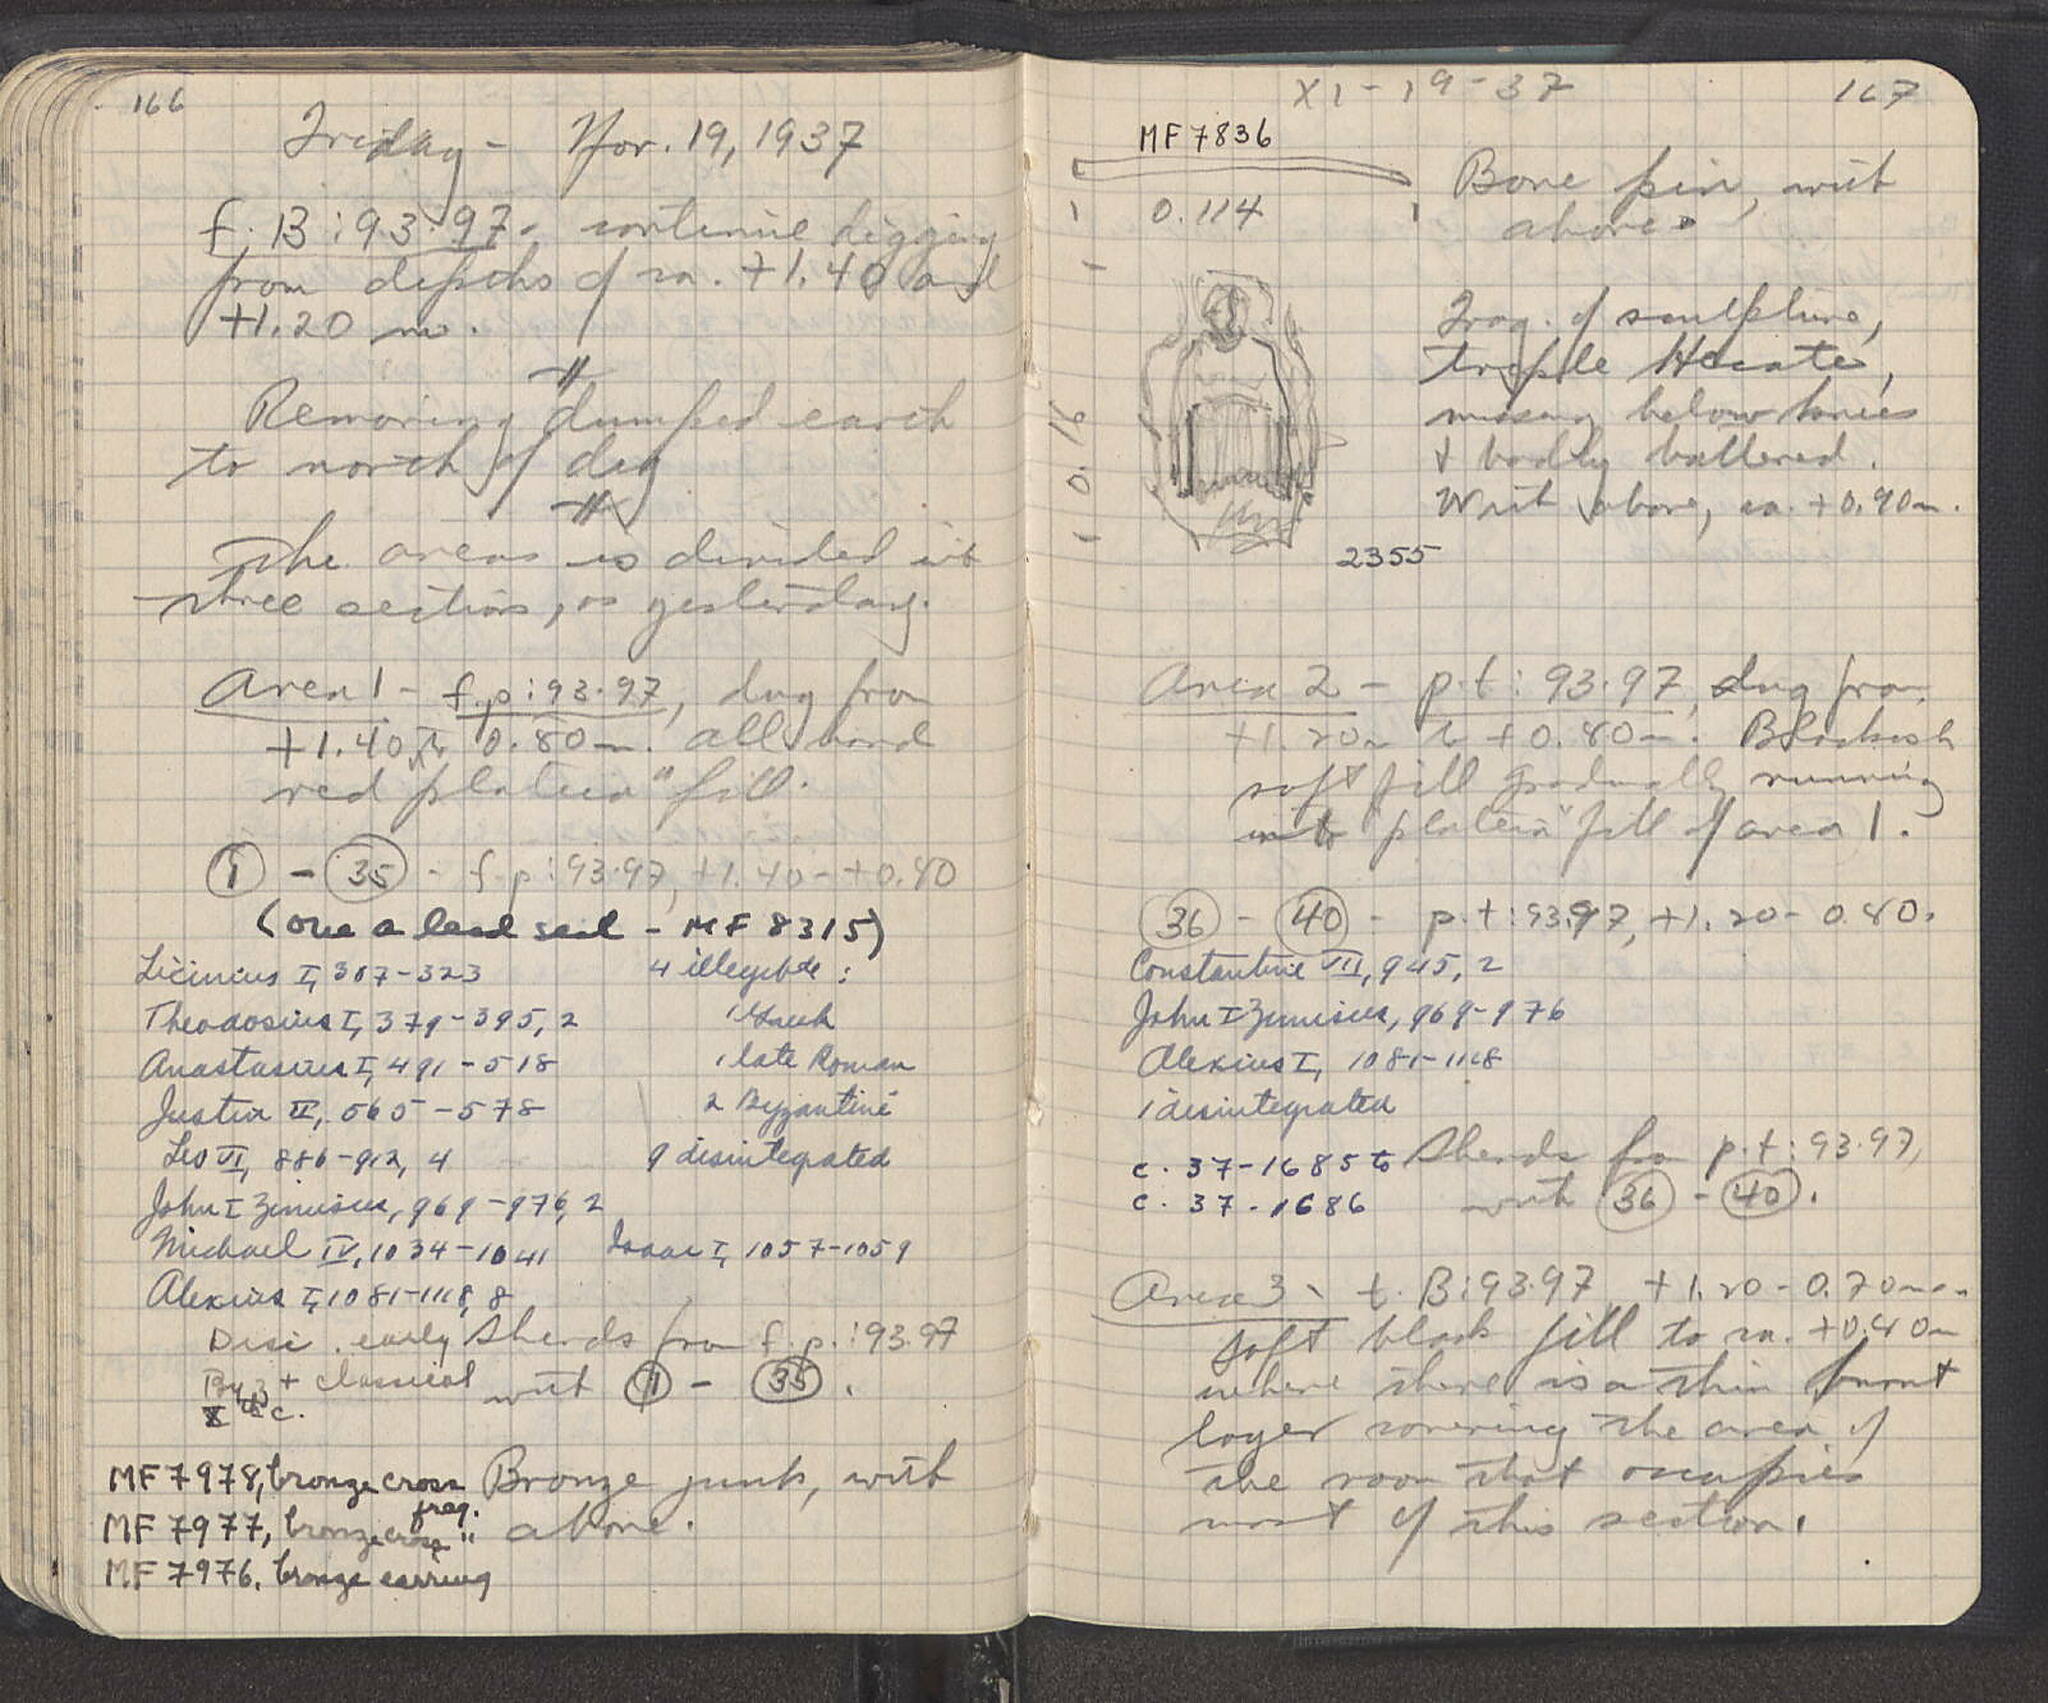 166
Friday - Nov. 19, 1937
f. B : 93.97 - continue digging
from depths of ca. +1.40 and
+1.20 m.
Removing dumped earth
to north of dig
The area is divided int
three sections, as yesterday.
Area 1 - f.p : 93.97, dug from
+1.40 to 0.80 m. all hard
red plateia" fill.
1 - 35 - f.p : 93.97, +1.40 - +0.80
(one a lead seal - MF 8315)
Licinius I, 307-323
4 illegible :
Theodosius I, 379-395, 2
1 Greek
Anastasius I, 491-518
1 late Roman
Justin II, 565-578
2 Byzantine
Leo VI, 886-912, 4
9 disintegrated
John I Zimisces, 969-976, 2
Michael IV, 1034-1041 Isaac I, 1057-1059
Alexius I, 1081-1118, 8
Disc. early Sherds from f.p. : 93.97
Byz + classical with 1 - 35.
X th c.
MF 7978, bronze cross frag. Bronze junk, with
MF 7977, bronze cross " above.
MF 7976. bronze earring
XI - 19 - 37 167
MF 7836
0.114
Bone pin, with
above.
0.16
Frag. of sculpture,
triple Hecate,
missing below knees
+ badly battered.
With above, ca. +0.90m.
2355
Area 2 - p.t : 93.97, dug from
+1.20m to +0.80m. Blackish
soft fill gradually running
into "plateia" fill of area 1.
36 - 40 - p.t : 93.97, +1.20 - 0.80.
Constantine VII, 945, 2
John I Zimisces, 969-976
Alexius I, 1081-1118
1 disintegrated
c. 37-1685 to Sherds from p.t : 93.97,
c. 37-1686 with 36 - 40.
Area 3 - t. B : 93.97 +1.20 - 0.70m.
soft black fill to ca. +0.40m
where there is a thin burnt
layer covering the area of
the room that occupies
most of this section.